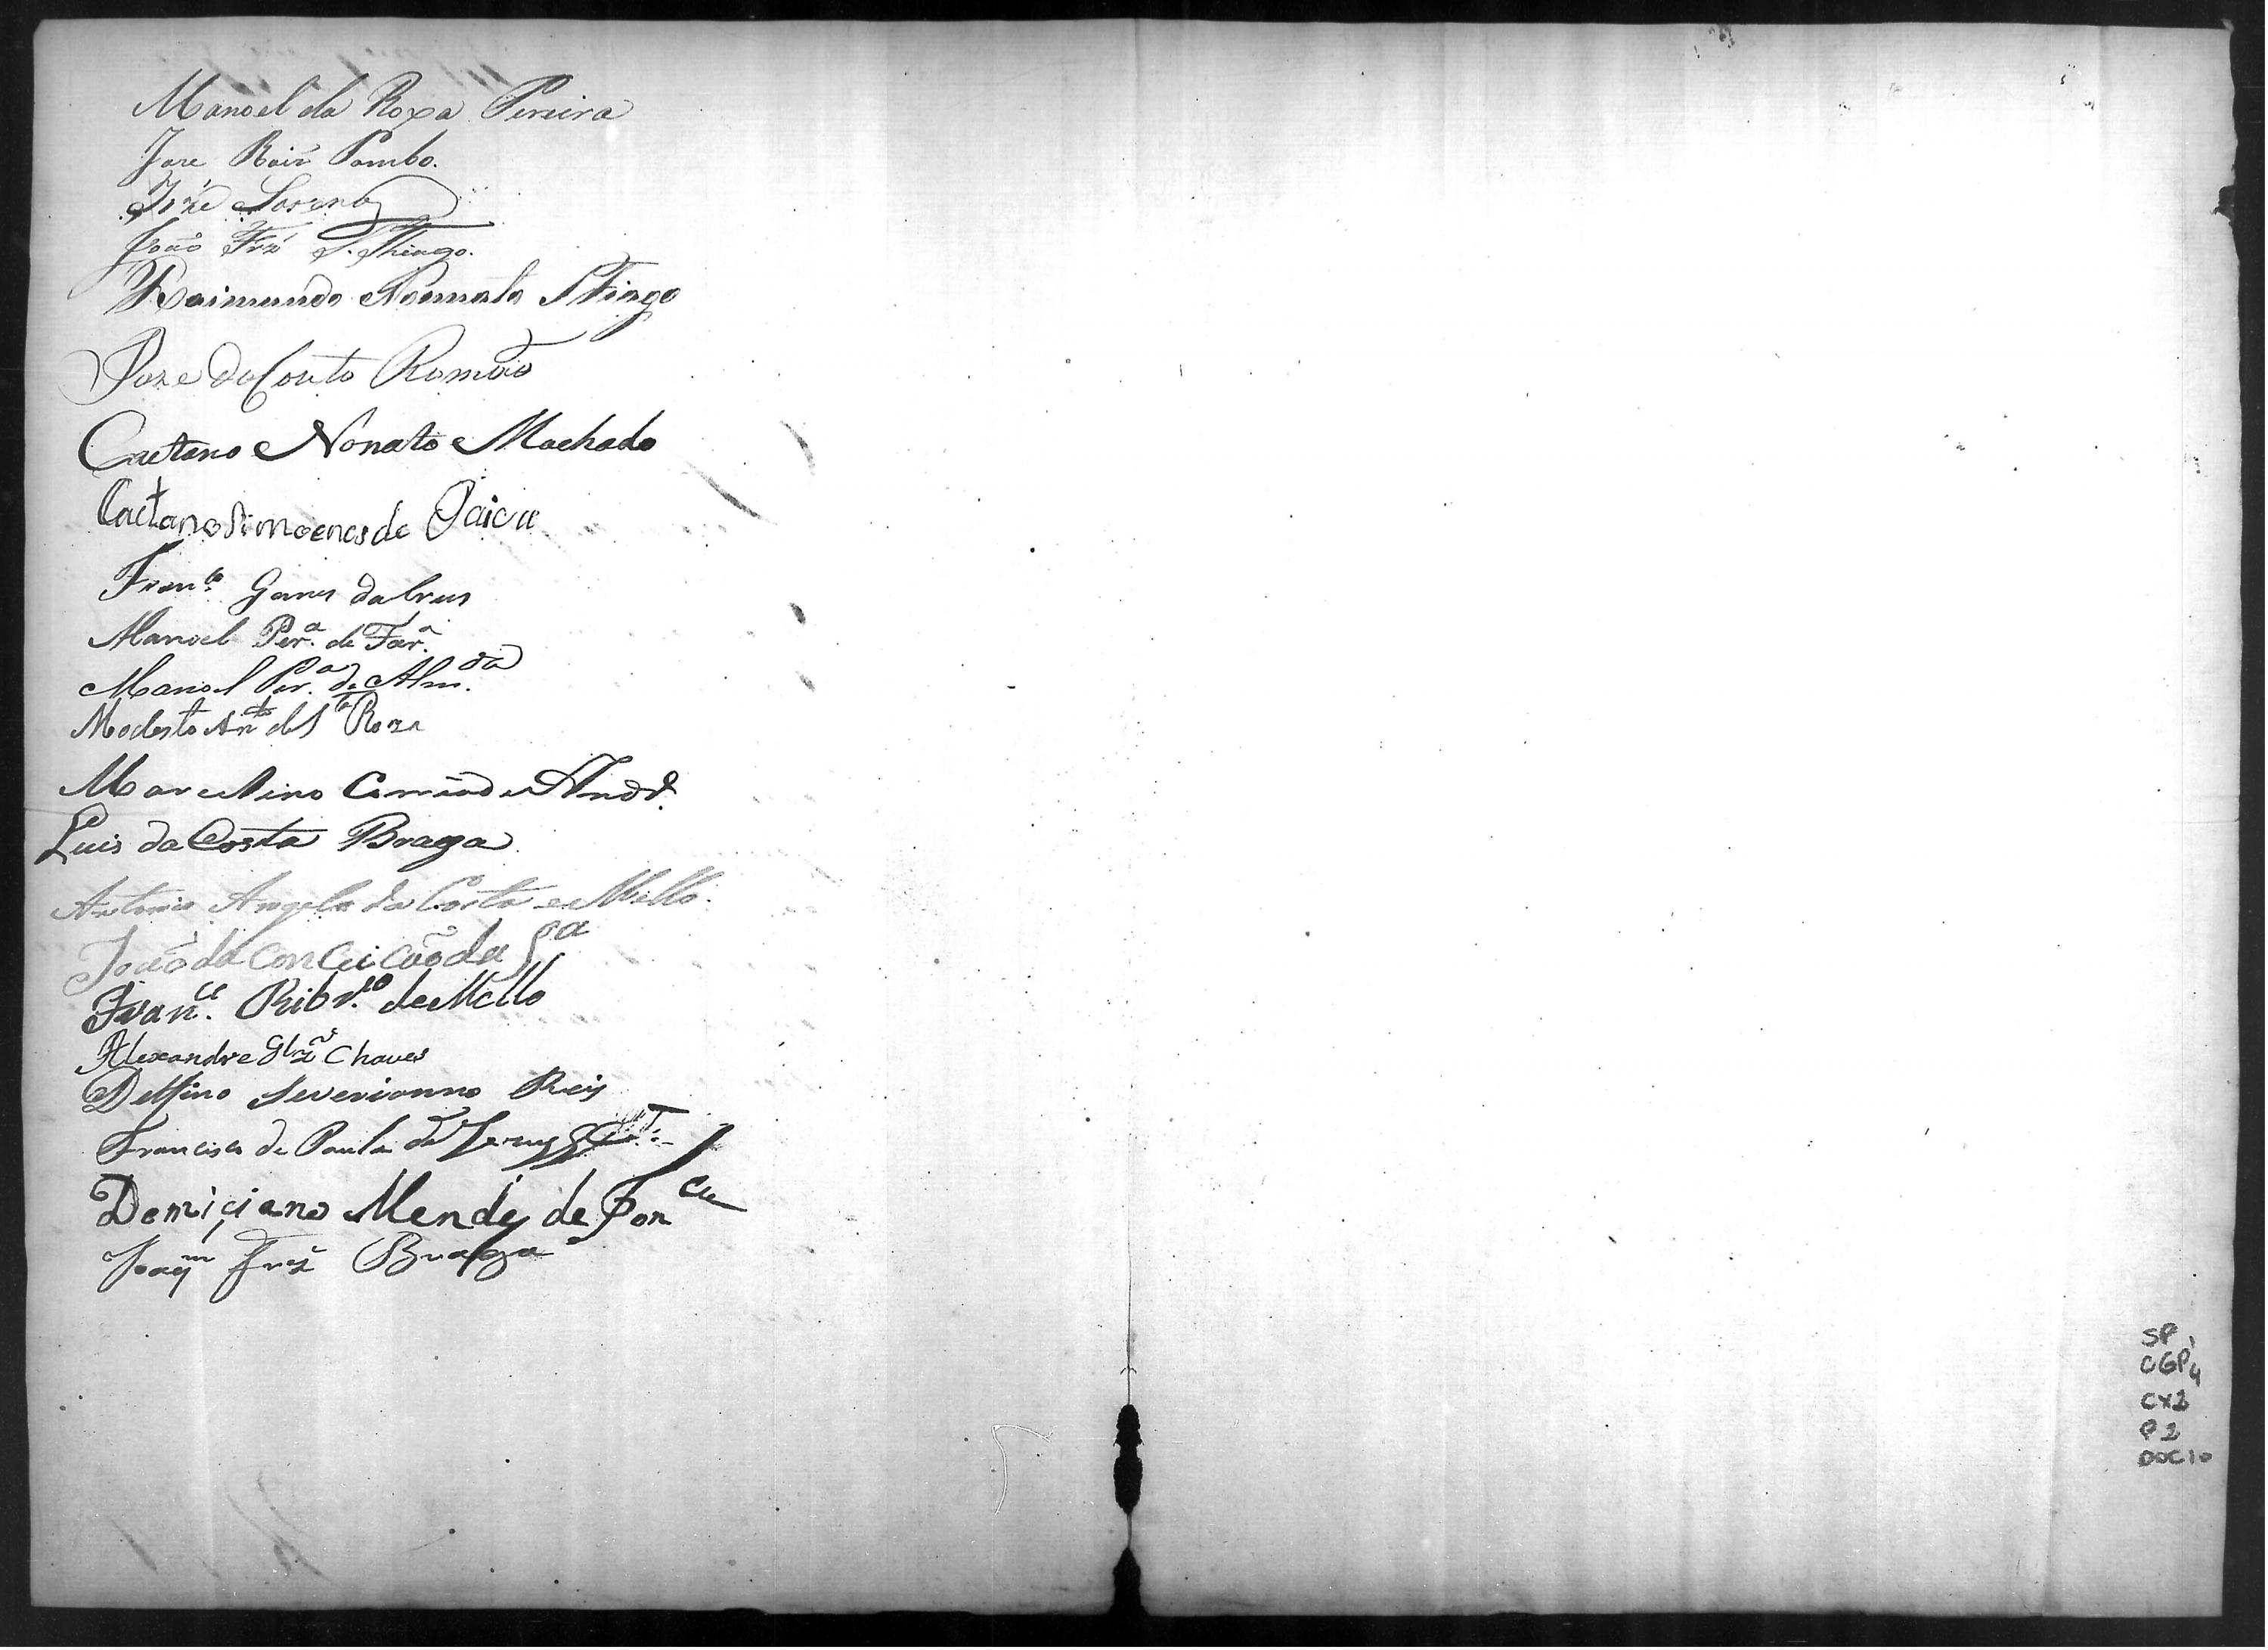 Manoel da Roxa Pereira
Joze Roiz Pombo.
José Lorenço
João Frz S. Thiago.
Raimundo Nonnato STiago
Joze do Couto Romão
Caetano Nonato Machado
Caetano Simoens de Paiva
Fran.co Gomes da Crus
Manoel Per.a de Far.a
Manoel Per.a de Alm.da
Modesto Anto de Sta Roza
Marcelino Correa de Andr.e
Luis da Costa Braga
Antonio Angelo da Costa e Mello.
João da Conceicaõ da Sa
Fran.co Ribr.o de Mello
Alexandre Glz Chaves
Delfino Severianno Reis
Francisco de Paula de
Demiciano Mendes de Fonca
Joaqm Frz Braga
SP1
CGP4
CX2
P2
DOC10